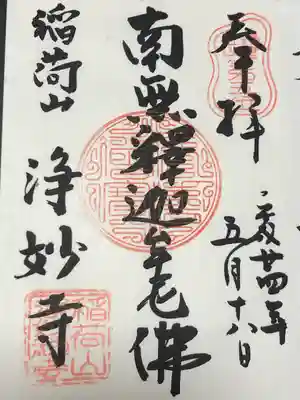 奉拝
廿四年
五月十八日
南無釋迦牟尼佛
稲荷山
浄妙寺
稲荷山